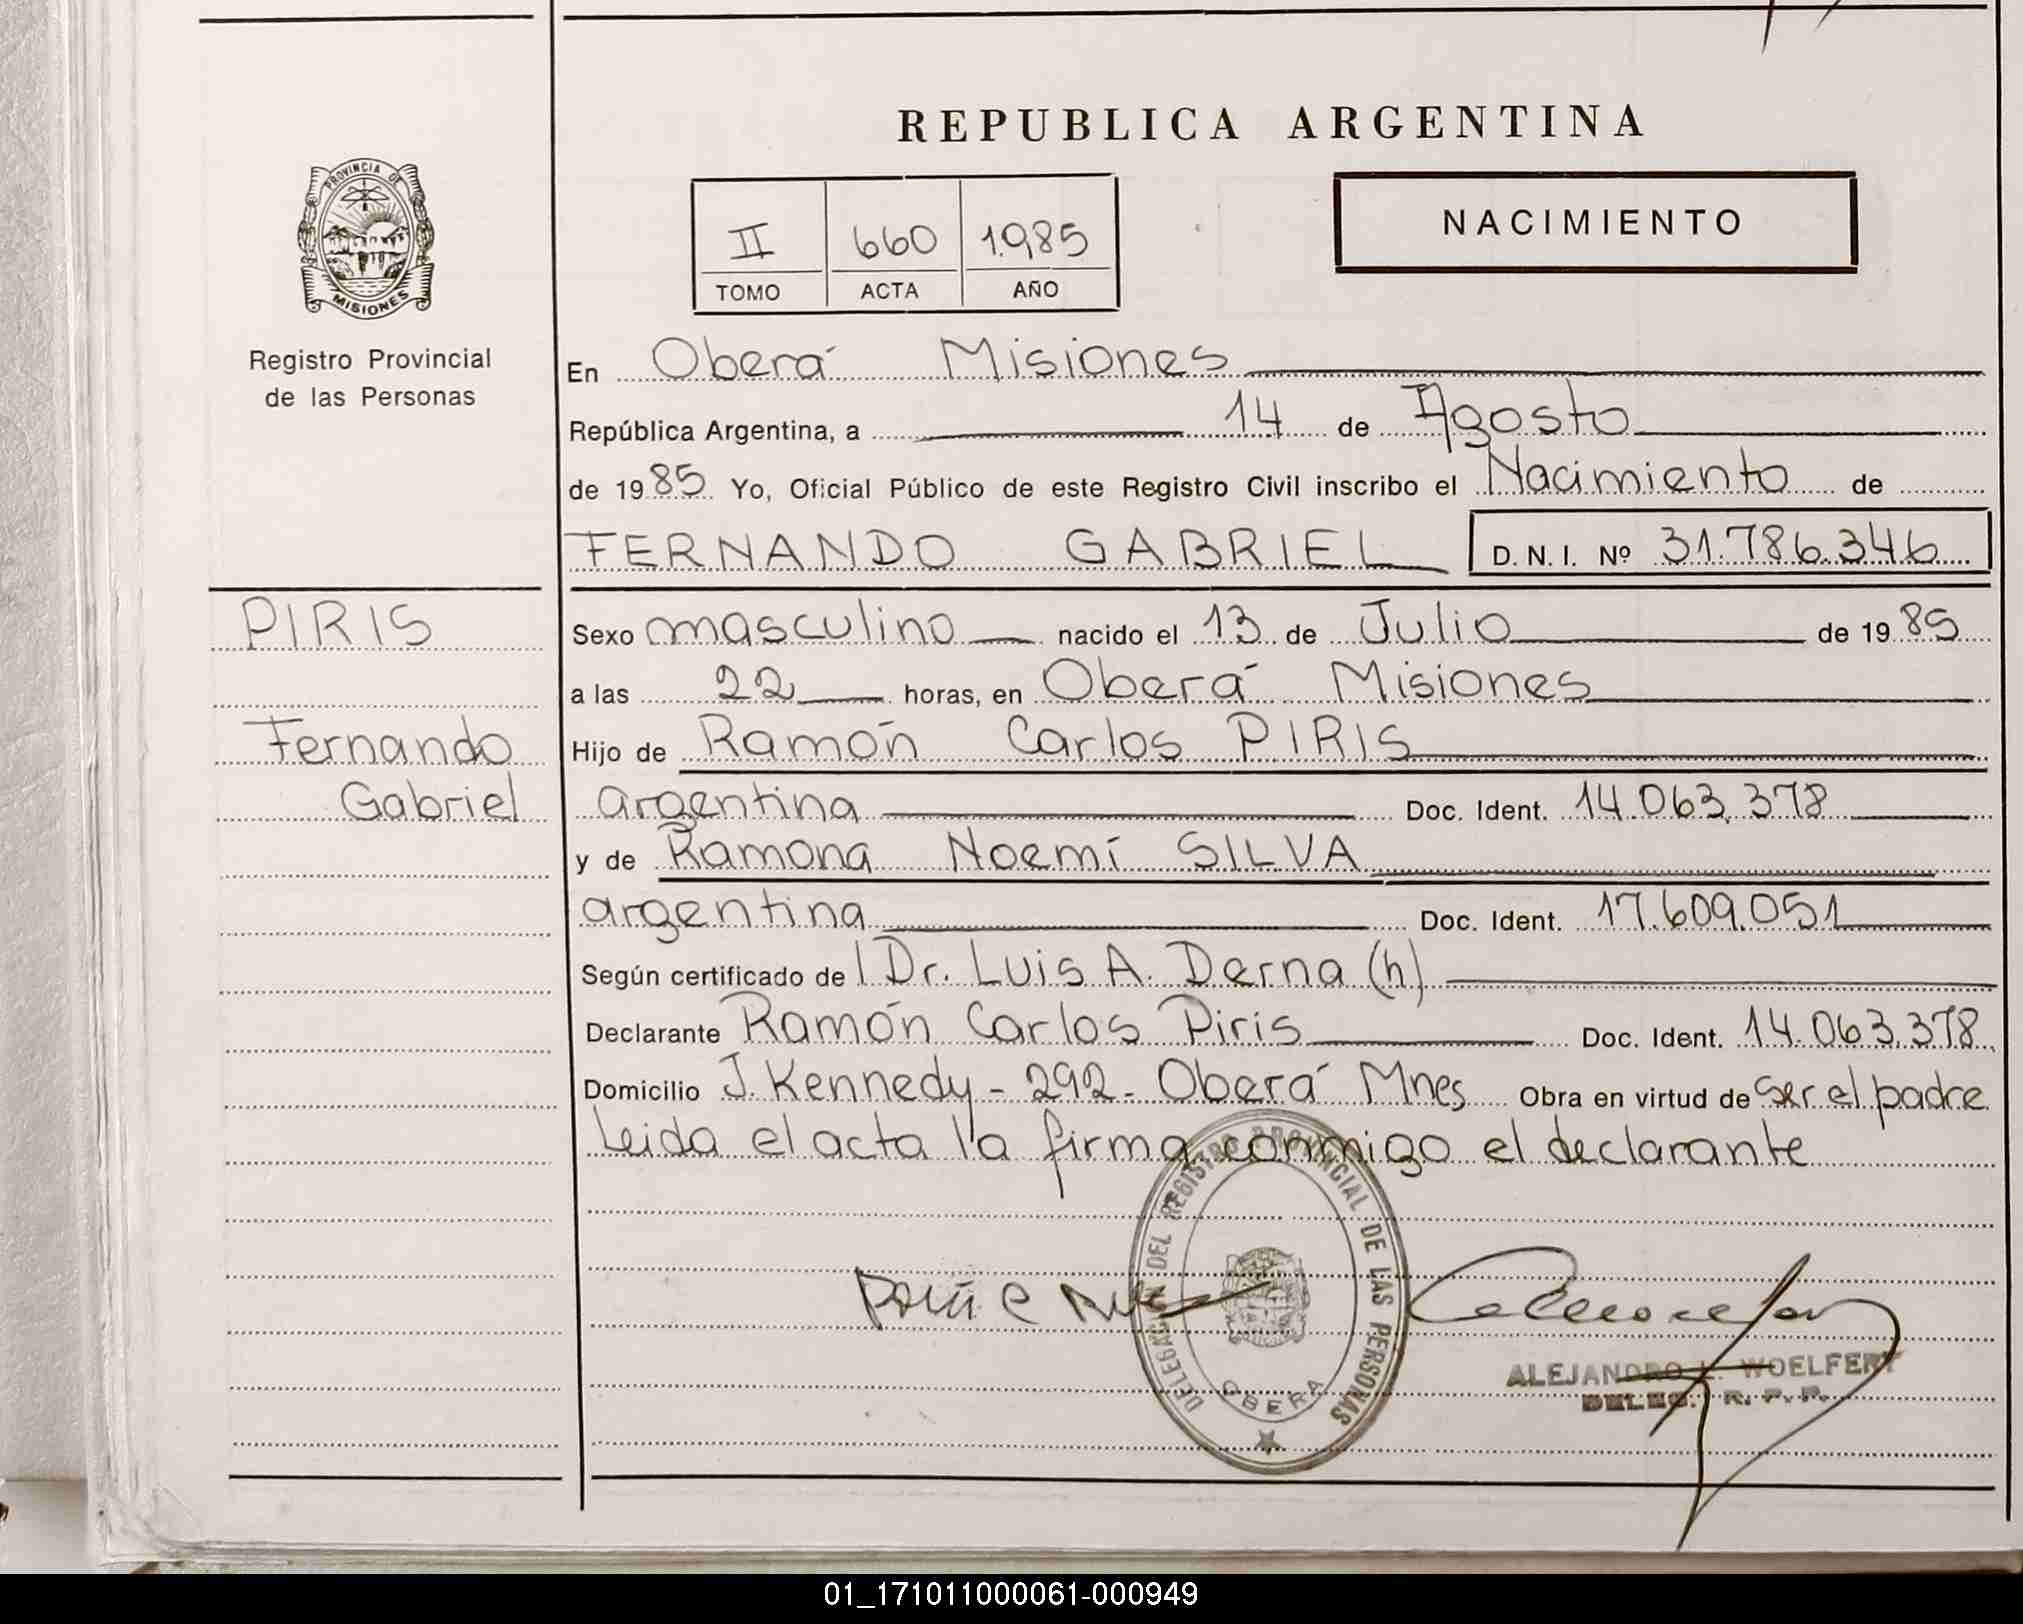 REPUBLICA ARGENTINA
PROVINCIA DE
MISIONES
Registro Provincial
de las Personas
II 660 1.985
TOMO ACTA AÑO
NACIMIENTO
En Oberá Misiones
República Argentina, a 14 de Agosto
de 1985 Yo, Oficial Público de este Registro Civil inscribo el Nacimiento de
FERNANDO GABRIEL D. N. I. Nº 31.786.346
PIRIS
Fernando
Gabriel
Sexo masculino nacido el 13 de Julio de 1985
a las 22 horas, en Oberá Misiones
Hijo de Ramón Carlos PIRIS
argentina Doc. Ident. 14.063.378
y de Ramona Noemí SILVA
argentina Doc. Ident. 17.609.051
Según certificado de l Dr. Luis A. Derna (h)
Declarante Ramón Carlos Piris Doc. Ident. 14.063.378
Domicilio J. Kennedy - 292 - Oberá Mnes Obra en virtud de ser el padre
Leida el acta la firma conmigo el declarante
DELEGACION DEL REGISTRO PROVINCIAL DE LAS PERSONAS
OBERA
ALEJANDRO L. WOELFERT
DELEG. R. P. P.
01_171011000061-000949